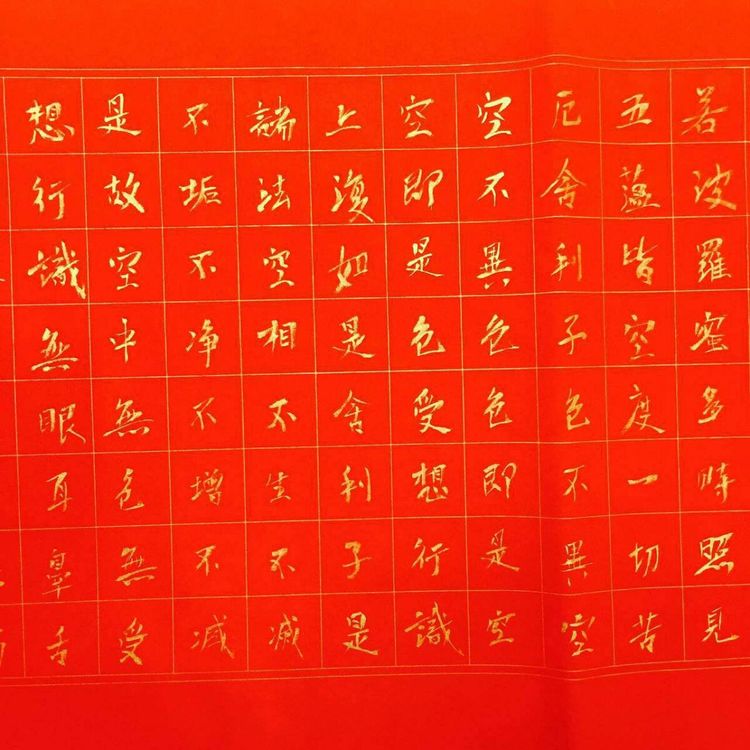 若波羅蜜多時照見
五蘊皆空度一切苦
厄舍利子色不異空
空不異色色即是空
空即是色受想行識
亦復如是舍利子是
諸法空相不生不滅
不垢不净不增不減
是故空中無色無受
想行識無眼耳鼻舌